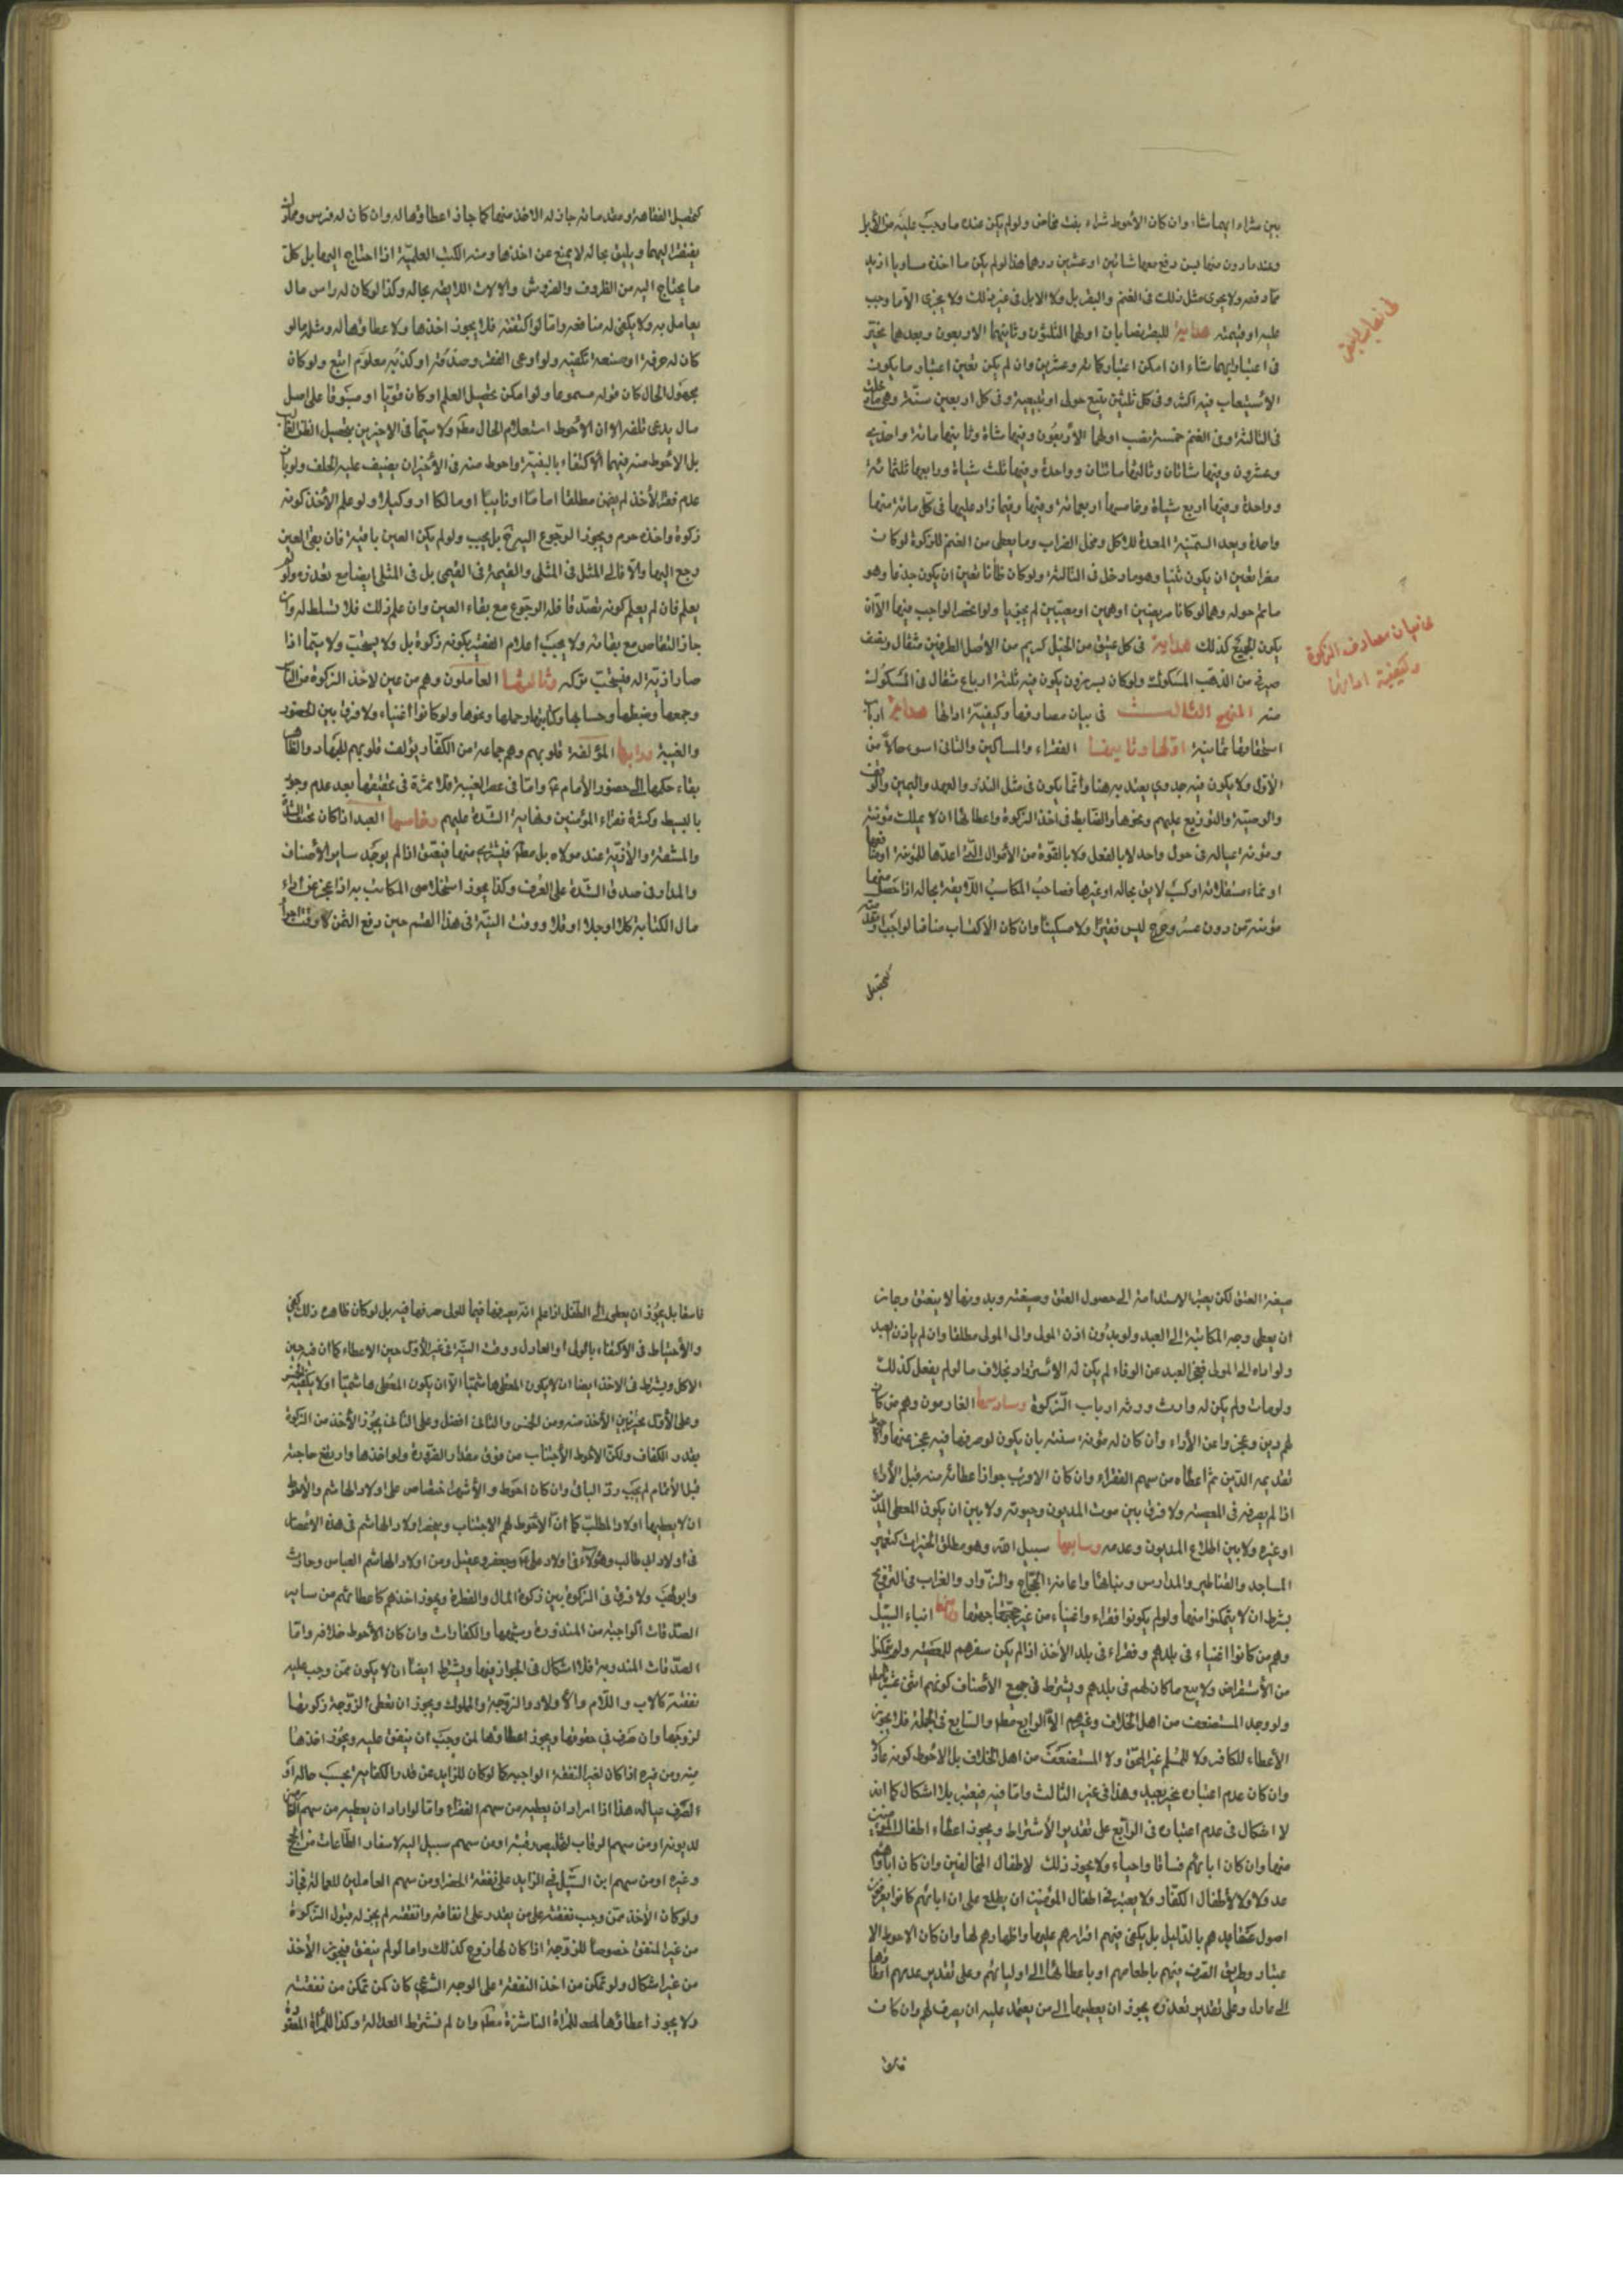 بين شراء ايهما شاء وان كان الأحوط شراء بنت مخاض ولو لم يكن عنده ما وجب عليه من الأبل
وعنده ما دون منها بسن دفع معها شاتين او عشرين درهما هذا لو لم يكن ما اخذه مساويا ازيد
مما دفعه ولا يجرى مثل ذلك فى الغنم والبقر بل ولا الابل فى غير ذلك ولا يجزى الا ما وجب
عليه او قيمته هداية للبقر نصابان اولهما الثلثون وثانيهما الاربعون وبعدهما يخير
فى اعتبار ايهما شاء ان امكن اعتباره كمائة وعشرين وان لم يكن تعين اعتبار ما يكون
الأستيعاب فيه اكثر وفى كل ثلثين تبيع حولى او تبيعة وفى كل اربعين مسنة وهى ما دخلت
فى الثالثة وفى الغنم خمسة نصب اولها الأربعون وفيها شاة وثانيها مائة واحدى
وعشرون وفيها شاتان وثالثها مائتان وواحدة وفيها ثلث شياة ورابعها ثلثمائة
وواحدة وفيها اربع شياة وخامسها اربعمائة وفيها وفيما زاد عليها فى كل مائة منها
واحدة وبعد السمينة المعدة للاكل وفحل الضراب وما يعطى من الغنم للزكوة لو كان
معزا تعين ان يكون ثنيا وهو ما دخل فى الثالثة ولو كان ضأنا تعين ان يكون جذعا وهو
ما تم حوله وهما لو كانا مريضين او هرمين او معيبين لم يجزيا ولو انحصر الواجب فيها الا ان
يكون الجميع كذلك هداية فى كل عتيق من الخيل كريم من الأصل الطرفين مثقال ونصف
صيرفى من الذهب المسكوك ولو كان برذون يكون فيه ثلثة ارباع مثقال فى المسكوك
منه المنهج الثالث فى بيان مصارفها وكيفية ادائها هداية ارباب
استحقاقها ثمانية اولها وثانيها الفقراء والمساكين والثانى اسوء حالا من
الأول ولا يكون فيه جدوى يعتد به هنا وانما يكون فى مثل النذر والعهد واليمين والوقف
والوصية والتوزيع عليهم ونحوها والضابط فى اخذ الزكوة واعطائها ان لا يملك مؤنته
ومؤنة عياله فى حول واحد لا بالفعل ولا بالقوة من الأموال التى اعدها للمؤنة او منافعها
او نماء مستغلاته او كسب لايق بحاله او غيرها فصاحب المكاسب اللايقة بحاله اذا حصل منها
مؤنته من دون عسر وحرج ليس فقيرا ولا مسكينا وان كان الأكتساب منافيا لواجب
كتحصيل
بيان مصارف الزكوة
وكيفية ادائها
كتحصيل الفقاهة ومقدماته جاز له الاخذ منها كما جاز اعطاؤها له وان كان له فرس ومملوك
يفتقر اليهما ويليق بحاله لا يمنع عن اخذها ومنه الكتب العلمية اذا احتاج اليها بل كل
ما يحتاج اليه من الظروف والفروش والالات اللايقة بحاله وكذا لو كان له راس مال
يعامل به ولا يكفى له منافعه واما لو اكتفته فلا يجوز اخذها ولا اعطاؤها له ومثله ما لو
كان له حرفة او صنعة تكفيه ولو ادعى الفقر وصدقه او كذبه معلوم اتبع ولو كان
مجهول الحال كان قوله مسموعا ولو امكن تحصيل العلم او كان قويا او مسبوقا على اصل
مال يدعى تلفه الا ان الأحوط استعلام الحال مطلقا ولا سيما فى الاخيرين بتحصيل الظن الغالب
بل الأحوط منه فيهما الاكتفاء بالبينة واحوط منه فى الأخير ان يضيف عليه الحلف ولو بان
عدم فقر الأخذ لم يضمن مطلقا اماما او نايبا او مالكا او وكيلا ولو علم الأخذ كونه
زكوة واخذه حرم ويجوز الرجوع اليه بل يجب ولو لم يكن العين باقية فان بقى العين
رجع اليها والا فالى المثل فى المثلى والقيمة فى القيمى بل فى المثلى ايضا مع تعذره ولو لم
يعلم فان لم يعلم كونه تصدقا فله الرجوع مع بقاء العين وان علم ذلك فلا تسلط له وان
جاز التقاص مع بقائه ولا يجب اعلام الفقير بكونه زكوة بل ولا يستحب ولا سيما اذا
صار اذية له فيستحب تركه وثالثها العاملون وهم من عين لاخذ الزكوة من الناس
وجمعها وضبطها وحسابها وكتابتها وحملها ونحوها ولو كانوا اغنياء ولا فرق بين الحضور
والغيبة ورابعها المؤلفة قلوبهم وهم جماعة من الكفار يؤلف قلوبهم للجهاد والظاهر
بقاء حكمها الى حضور الأمام ع واما فى عصر الغيبة فلا ثمرة فى تحقيقها بعد عدم وجوب
بالبسط وكثرة فقراء المؤمنين ونهاية الشدة عليهم وخامسها العبد اذا كان تحت الشدة
والمشقة والأذية عند مولاه بل مطلقا فيشترى منها فيعتق اذا لم يوجد ساير الأصناف
والمدار فى صدق الشدة على العرف وكذا يجوز استخلاص المكاتب به اذا عجز عن اداء
مال الكتابة كلا او جلا او قلا ووقت النية فى هذا القسم حين دفع الثمن لا وقت اجراء
صيغة العتق لكن يعتبر الاستدامة الى حصول العتق وصيغته وبدونها لا ينعتق وجاز
ان يعطى وجه المكاتبة الى العبد ولو بدون اذن المولى والى المولى مطلقا وان لم ياذن العبد
ولو اداه الى المولى فعجز العبد عن الوفاء لم يكن له الاسترداد بخلاف ما لو لم يفعل كذلك
ولو مات ولم يكن له وارث ورثه ارباب الزكوة وسادسها الغارمون وهم من كان
لهم دين وعجزوا عن الأداء وان كان له مؤنة سنته بان يكون لو صرفها فيه عجز عنها والأحوط
تقديمه الدين ثم اعطاءه من سهم الفقراء وان كان الاقرب جواز اعطائه منه قبل الأداء
اذا لم يصرفه فى المعصية ولا فرق بين موت المديون وحيوته ولا بين ان يكون المعطى الدين
او غيره ولا بين اطلاع المديون وعدمه وسابعها سبيل الله وهو مطلق الخيرات كتعمير
المساجد والقناطير والمدارس وبنائها واعانة الحجاج والزوار والغراب فى التزويج
بشرط ان لا يتمكنوا منها ولو لم يكونوا فقراء واغنياء من غير جهتها وثامنها ابناء السبيل
وهم من كانوا اغنياء فى بلدهم وفقراء فى بلد الأخذ اذا لم يكن سفرهم للمعصية ولم يتمكنوا
من الأستقراض ولا بيع ما كان لهم فى بلدهم ويشترط فى جميع الأصناف كونهم اثنى عشريا
ولو وجد المستضعف من اهل الخلاف وغيرهم الا الرابع مطلقا والسابع فى الجملة فلا يجوز
الأعطاء للكافر ولا للمسلم غير المحق ولا المستضعف من اهل الخلاف بل الاحوط كونه عادلا
وان كان عدم اعتباره غير بعيد وهذا فى غير الثالث واما فيه فيعتبر بلا اشكال كما انه
لا اشكال فى عدم اعتباره فى الرابع على تقدير الأشتراط ويجوز اعطاء اطفال المؤمنين
منها وان كان ابائهم فساقا واحياء ولا يجوز ذلك لاطفال المخالفين وان كان اباؤهم
عدولا ولا لأطفال الكفار ولا يعتبر فى اطفال المؤمنين ان يطلع على ان ابائهم كانوا يعرفون
اصول عقايدهم بالدليل بل يكفى فيهم اقرارهم عليها واظهارهم لها وان كان الاحوط الا
عتبار وطريق الصرف فيهم باطعامهم او باعطائها الى اوليائهم وعلى تقدير عدمهم
الى عادل وعلى تقدير تعذره يجوز ان يعطيها الى من يعتمد عليه ان يصرف لهم وان كان
فاسقا
فاسقا بل يجوز ان يعطى الى الطفل اذا علم انه يصرفها فيما للولى صرفها فيه بل لو كان ظاهره ذلك كفى
والأحتياط فى الاكتفاء بالولى او العادل ووقت النية فى غير الأول حين الاعطاء كما ان فيه حين
الاكل ويشترط فى الاخذ ايضا ان لا يكون المعطى هاشميا الا ان يكون المعطى هاشميا او لا يكفيه الخمس
وعلى الأول يخير بين الأخذ منه ومن الخمس والثانى افضل وعلى الثانى يجوز الأخذ من الزكوة
بقدر الكفاف ولكن الاحوط الأجتناب من فوق مقدار الضرورة ولو اخذها وارتفع حاجته
قبل الأتمام لم يجب رد الباقى وان كان احوط والأشهر اختصاص على اولاد الهاشم والأحوط
ان لا يعطيها اولاد المطلب كما ان الأحوط لهم الاجتناب وينحصر اولاد الهاشم فى هذه الاعصار
فى اولاد ابى طالب وهؤلاء فى اولاد على ع وجعفر وعقيل ومن اولاد الهاشم العباس وحارث
وابو لهب ولا فرق فى الزكوة بين زكوة المال والفطرة ويجوز اخذهم كاعطائهم من ساير
الصدقات الواجبة من المنذورة وشبهها والكفارات وان كان الأحوط خلافه واما
الصدقات المندوبة فلا اشكال فى الجواز فيها ويشترط ايضا ان لا يكون ممن وجب عليه
نفقته كالاب والام والأولاد والزوجة والمملوك ويجوز ان تعطى الزوجة زكوتها
لزوجها وان صرف فى حقوقها ويجوز اعطاؤها لمن وجب ان ينفق عليه ويجوز اخذها
منه ومن غيره اذا كان لغير النفقة الواجبة كما لو كان للزايد عن قدر الكفاية بحسب حاله او
لصرف عياله هذا اذا اراد ان يعطيه من سهم الفقراء واما لو اراد ان يعطيه من سهم الغارمين
لديونه او من سهم الرقاب لتخليص رقبته او من سهم سبيل الله لاسفار الطاعات من الحج
وغيره او من سهم ابن السبيل فى الزايد على نفقة الحضر او من سهم العاملين للعمالة فجاز
ولو كان الأخذ ممن وجب نفقته على من يقدر على انفاقه وانفقه لم يجز له قبول الزكوة
من غير المنفق خصوصا للزوجة اذا كان لها زوج كذلك واما لو لم ينفق فيجوز الأخذ
من غير اشكال ولو تمكن من اخذ النفقة على الوجه الشرعى كان كمن تمكن من نفقته
ولا يجوز اعطاؤها للمرأة الناشزة مطلقا وان لم نشترط العدالة وكذا للمرأة المعقودة